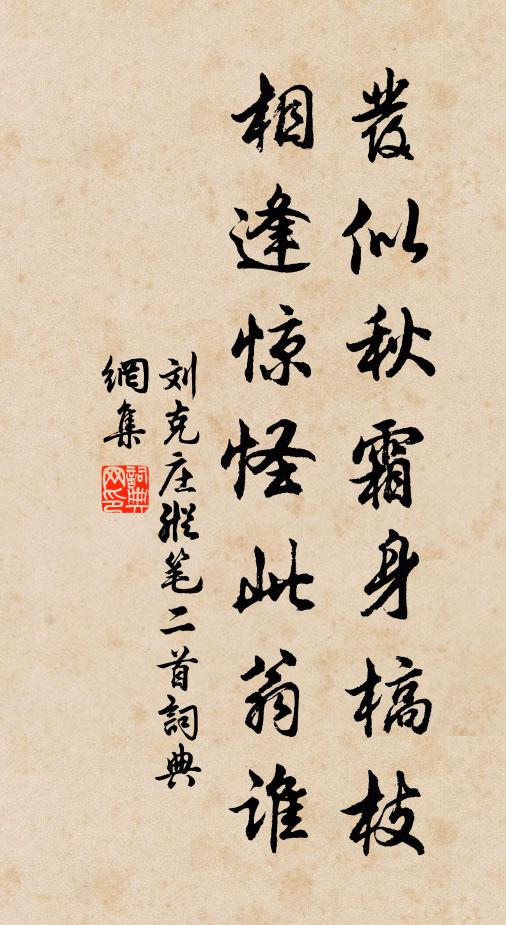 發似秋霜身槁枝
相逢惊怪此翁谁
刘克庄縱笔二首詞典
網集
詞典网印